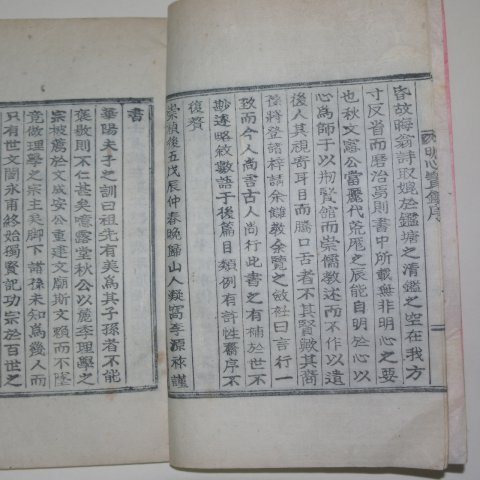 明心寶鑑序
昏故晦翁詩取媿於鑑塘之清鑑之空在我方
寸反省而磨治焉則書中所載無非明心之要
也秋文憲公當麗代荒厖之辰能自明於心以
心爲師于以刱賢館而崇儒敎述而不作以遺
後人其視寄耳目而騰口舌者不其賢歟其裔
孫將登諸梓請余讎敎余覽之斂衽曰言行一
致而今人尚書古人尚行此書之有補於世不
尠遂略敘數語于後篇目類例有許性齋序不
復贅
崇禎後五戊辰仲春晚歸山人凝窩李源祚謹
書
華陽夫子之訓曰祖先有美爲其子孫者不能
褒敭則不仁甚矣噫露堂秋公以麗季理學之
宗被薦於文成安公重建文廟斯文賴而不墜
竟做理學之宗主矣脚下諸孫未知爲幾人而
只有世文閏永甫終始獨賢記功宗於百世之